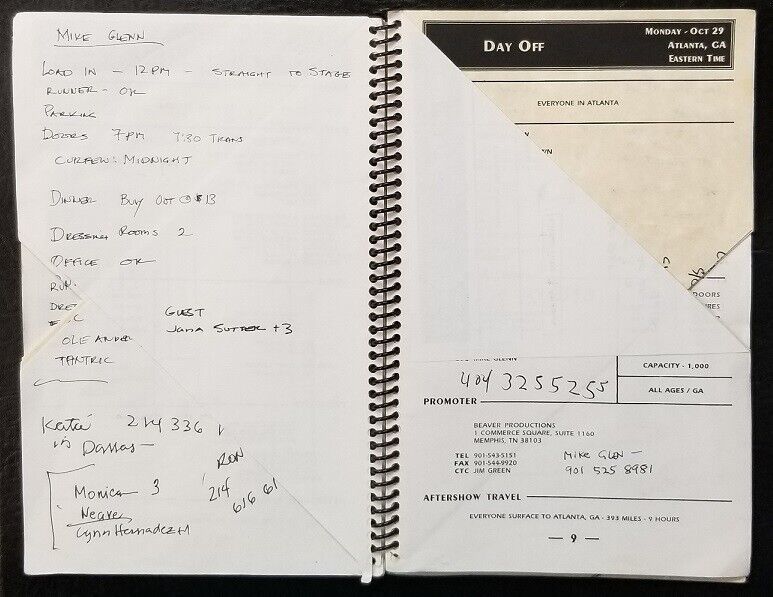 MIKE GLENN
LOAD IN - 12PM - STRAIGHT TO STAGE
RUNNER - OK
PARKING
DOORS 7PM 7:30 TRANS
CURFEW: MIDNIGHT
DINNER BUY OUT @ $13
DRESSING ROOMS 2
OFFICE OK
RUN
DRE
GUEST
JANA SUTTER +3
OLEANDER
TANTRIC
Katie 214 336 1
in Dallas -
RON
214
616 61
Monica 3
Neaves
Lynn Hernadez +1
DAY OFF
MONDAY - OCT 29
ATLANTA, GA
EASTERN TIME
EVERYONE IN ATLANTA
WN
DOORS
URES
MIKE GLENN
404 3255255
CAPACITY - 1,000
ALL AGES / GA
PROMOTER
BEAVER PRODUCTIONS
1 COMMERCE SQUARE, SUITE 1160
MEMPHIS, TN 38103
TEL 901-543-5151
FAX 901-544-9920
CTC JIM GREEN
MIKE GLEN -
901 525 8981
AFTERSHOW TRAVEL
EVERYONE SURFACE TO ATLANTA, GA - 393 MILES - 9 HOURS
— 9 —